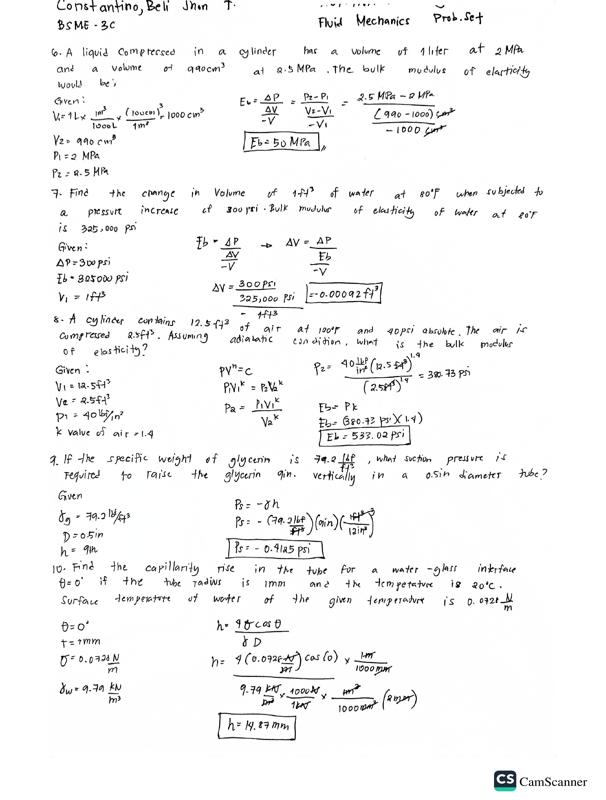 Constantino, Beli Jhon T.
BSME - 3C
Fluid Mechanics Prob. Set
6. A liquid compressed in a cylinder has a volume of 1 liter at 2 MPa
and a volume of 990cm³ at 2.5 MPa. The bulk modulus of elasticity
would be;
Given:
V₁ = 1L x 1m³/1000L x (100cm)³/1m³ = 1000 cm³
V₂ = 990 cm³
P₁ = 2 MPa
P₂ = 2.5 MPa
Eb = ΔP/(ΔV/-V) = P₂-P₁/(V₂-V₁/-V₁) = 2.5 MPa - 2 MPa/((990-1000) cm³/-1000 cm³)
Eb = 50 MPa
7. Find the change in Volume of 1ft³ of water at 80°F when subjected to
a pressure increase of 300 psi. Bulk modulus of elasticity of water at 80°F
is 325,000 psi
Given:
ΔP = 300 psi
Eb = 325000 psi
V₁ = 1ft³
Eb = ΔP/(ΔV/-V) → ΔV = ΔP/(Eb/-V)
ΔV = 300 psi/(325,000 psi/-1ft³) = -0.00092 ft³
8. A cylinder contains 12.5ft³ of air at 100°F and 40psi absolute. The air is
compressed 2.5ft³. Assuming adiabatic condition, what is the bulk modulus
of elasticity?
Given:
V₁ = 12.5ft³
V₂ = 2.5ft³
P₁ = 40 lbf/in²
k value of air = 1.4
PVⁿ = C
P₁V₁ᵏ = P₂V₂ᵏ
P₂ = P₁V₁ᵏ/V₂ᵏ
P₂ = 40 lbf/in² (12.5 ft³)^1.4/(2.5ft³)^1.4 = 380.73 psi
Eb = Pk
Eb = (380.73 psi)(1.4)
Eb = 533.02 psi
9. If the specific weight of glycerin is 79.2 lbf/ft³, what suction pressure is
required to raise the glycerin 9in. vertically in a 0.5in diameter tube?
Given
γg = 79.2 lbf/ft³
D = 0.5in
h = 9in
Ps = -γh
Ps = -(79.2 lbf/ft³)(9in)(1ft³/12in³)
Ps = -0.4125 psi
10. Find the capillarity rise in the tube for a water-glass interface
θ=0° if the tube radius is 1mm and the temperature is 20°C.
Surface temperature of water of the given temperature is 0.0728 N/m
θ = 0°
r = 1mm
σ = 0.0728 N/m
γw = 9.79 kN/m³
h = 4σ cos θ/γD
h = 4(0.0728 N/m) cos(0) x 1m/1000mm / 9.79 kN/m³ x 1000N/1kN x 1m³/1000mm³ (2mm)
h = 14.87mm
CS CamScanner